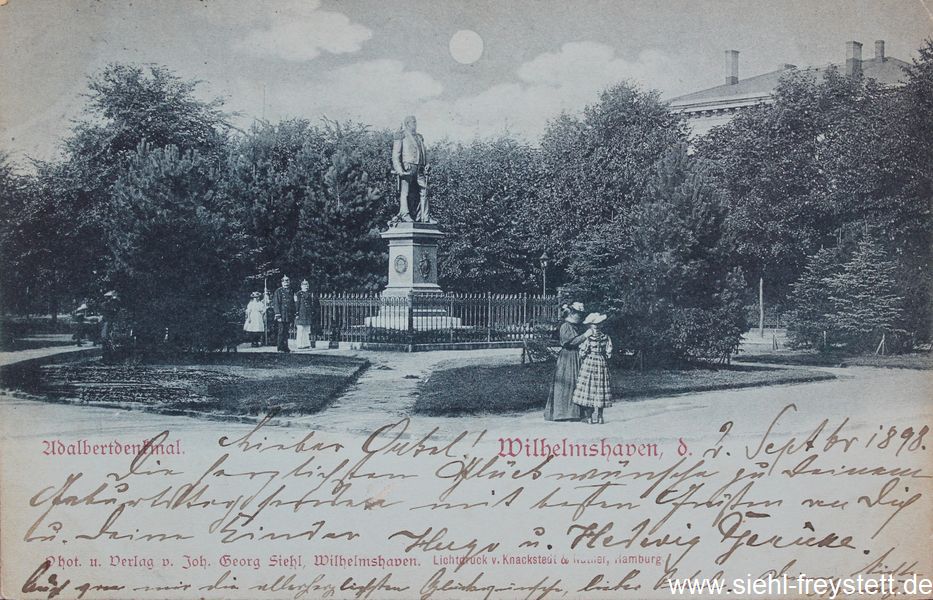 Adalbertdenkmal. Wilhelmshaven, d. 2. Septbr 1898.
Lieber Onkel!
Die herzlichsten Glückwünsche zu Deinem
Geburtstag senden mit besten Grüßen an Dich
u. Deine Kinder Hugo u. Hedwig Gericke.
Phot. u. Verlag v. Joh. Georg Siehl, Wilhelmshaven. Lichtdruck v. Knackstedt & Näther, Hamburg
Auch von mir die allerherzlichsten Glückwünsche, lieber
www.siehl-freystett.de